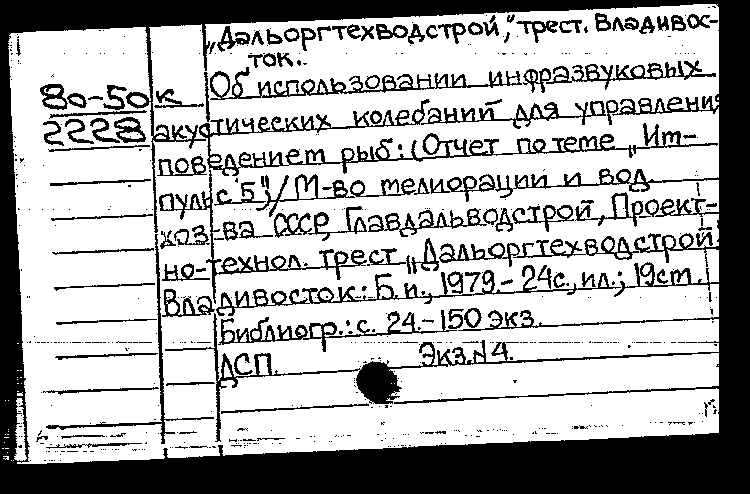 „Дальоргтехводстрой," трест. Владивос-
ток.
Об использовании инфразвуковых
80-50к
2228 акустических колебаний для управления
поведением рыб: (Отчет по теме „Им-
пульс 5")/М-во мелиорации и вод.
хоз-ва СССР, Главдальводстрой, Проект-
но-технол. трест „Дальоргтехводстрой".
Владивосток: Б.и., 1979.- 24с., ил.; 19см.
Библиогр.: с. 24.-150 экз.
ДСП. Экз.N4.